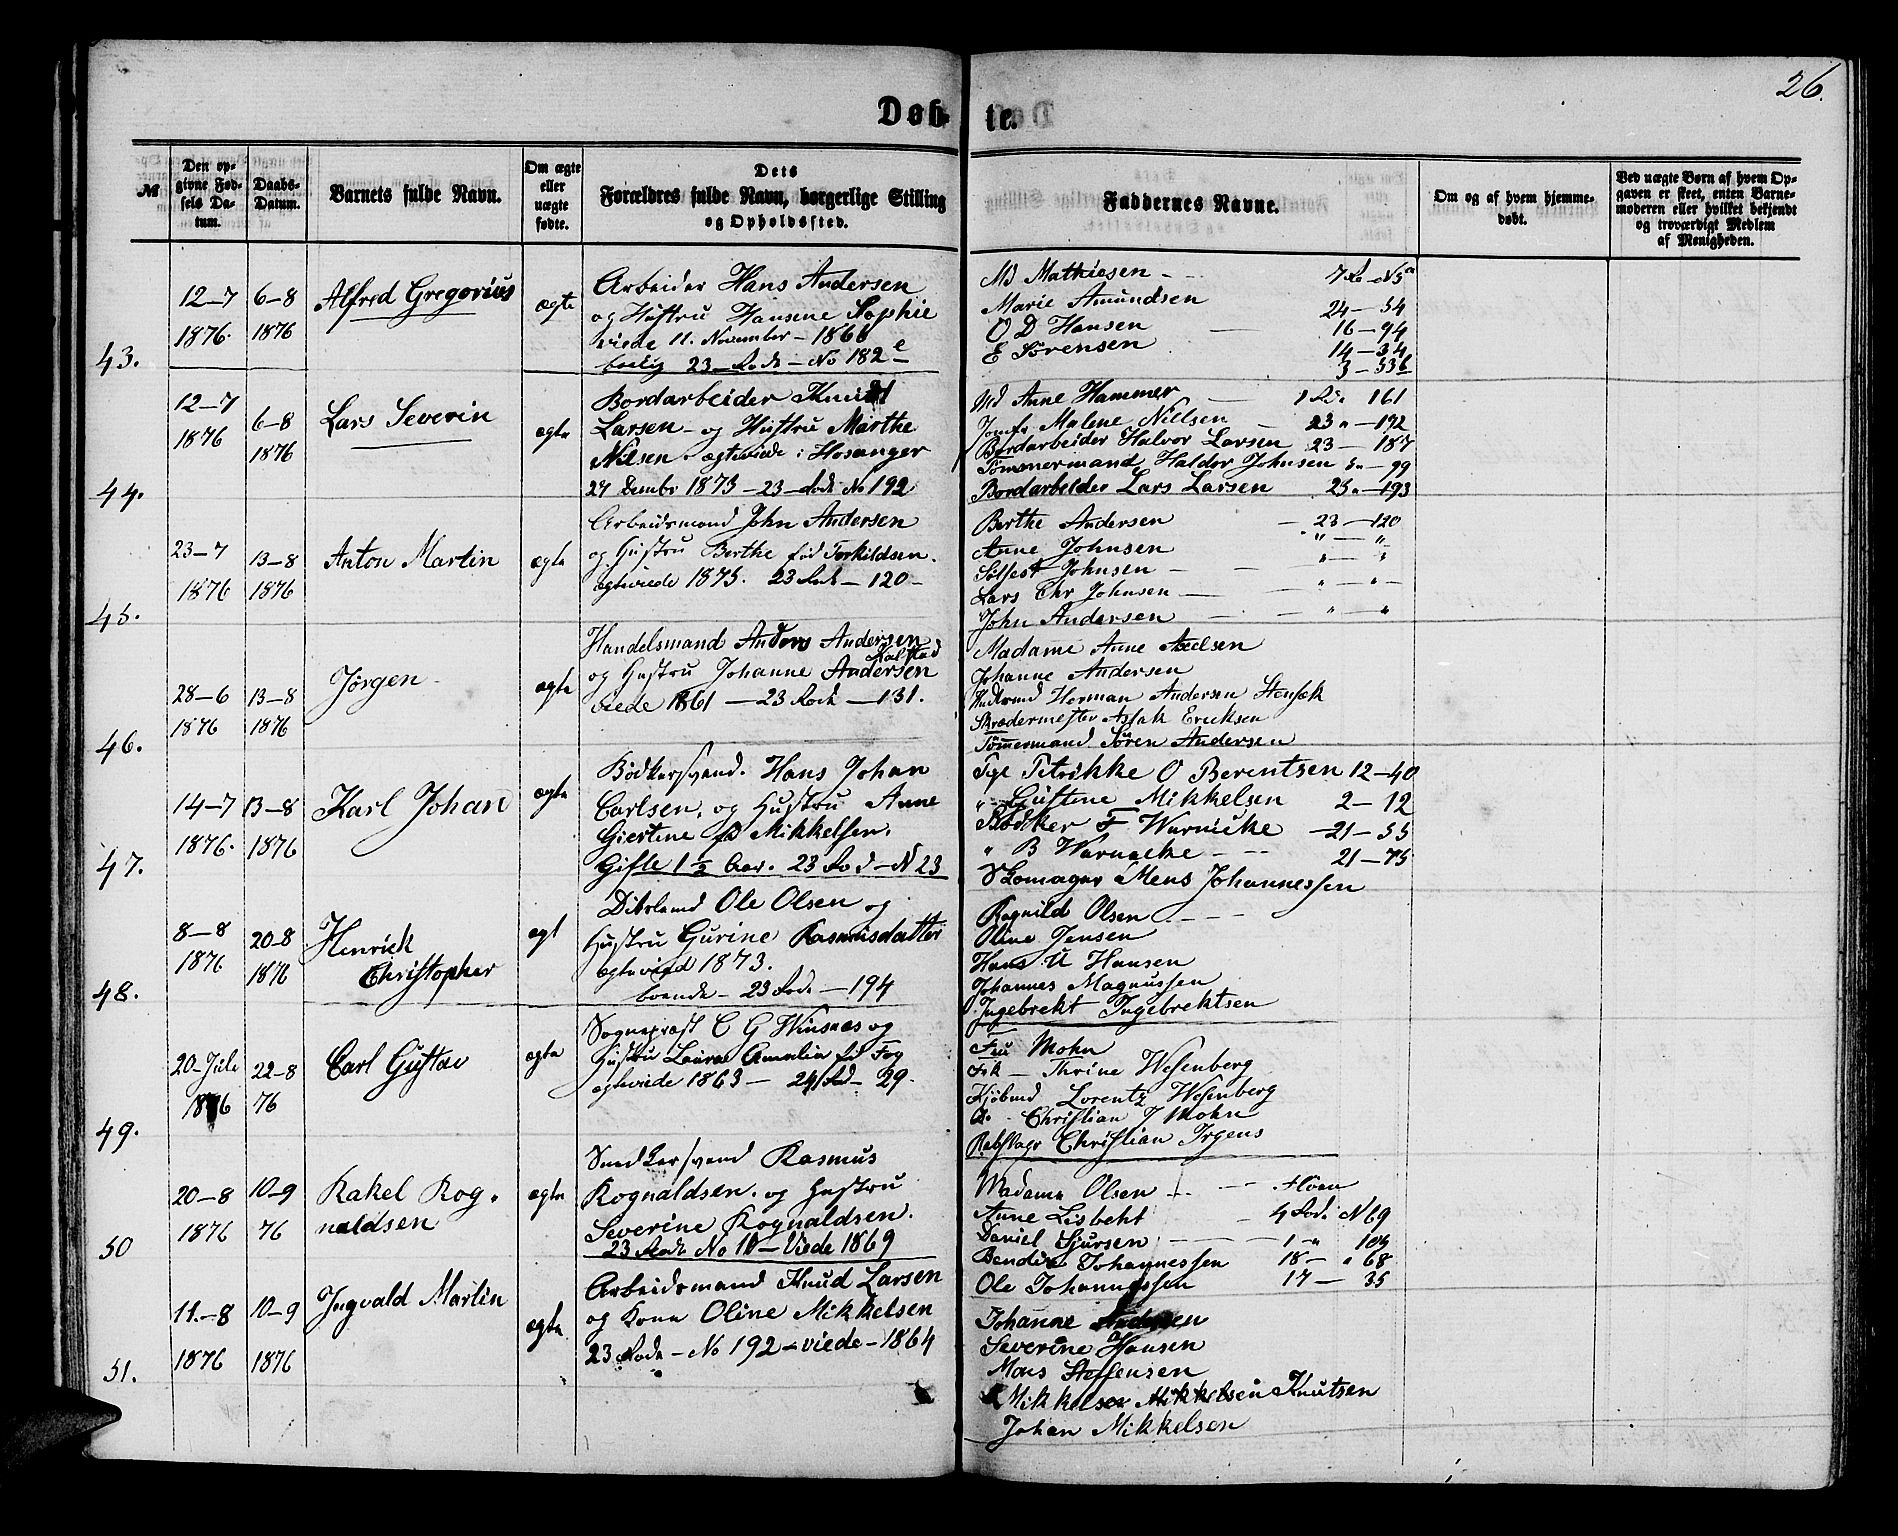 26.
Døbte.
№
Den opgivne Fødsels Datum.
Daabs-Datum.
Barnets fulde Navn.
Om ægte eller uægte fødte.
Dets Forældres fulde Navn, borgerlige Stilling og Opholdssted.
Faddernes Navne.
Om og af hvem hjemmedøbt.
Ved uægte Børn af hvem Opgaven er skeet, enten Barnemoderen eller hvilket bekjendt og troværdigt Medlem af Menigheden.
43.
12–7 1876.
6–8 1876
Alfred Gregorius
ægte
Arbeider Hans Andersen
og Hustru Hansene Sophie
viede 11. November – 1866
bolig 23 – Rode – No 182 e
Md Mathiesen – 7 Ro – N5 a
Marie Amundsen 24 – 54
O D Hansen – 16 – 94
E Sörensen 14 – 34
3 – 536
44.
12–7 1876
6–8 1876
Lars Severin
ægte
Bordarbeider Knud
Larsen – og Hustru Marthe
Nilsen – ægteviede i Hosanger
27 Dembr 1873 – 23 – Rode No 192
Md Anne Hammer – 1 Ro 161
Jomfr Malene Nillsen – 23 " – 192
Bordarbeider Halvor Larsen 23 – 187
Tömmermand Haldor Johnsen 5 " – 99
Bordarbeider Lars Larsen 23 " – 193
45.
23–7 1876
13–8 1876
Anton Martin
ægte
Arbeidsmand John Andersen
og Hustru Berthe fød Torkildsen.
ægteviede 1875. 23 Rode – 120 –
Berthe Andersen – 23 – 120
Anne Johnsen – " – "
Sölfest Johnsen – " – "
Lars Chr Johnsen – " – "
John Andersen – " – "
46.
28–6 1876
13–8 1876
Jørgen
ægte
Handelsmand Anders Andersen Kalstad
og Hustru Johanne Andersen
viede 1861 – 23 Rode – 131.
Madame Anne Axelsen
Johanne Andersen
Herman Andersen Stensæk
Skrædermester Aslak Ericksen
Tömmermand Sören Andersen
47.
14–7 1876.
13–8 1876
Karl Johan
ægte
Bödkersvend. Hans Johan
Carlsen. og Hustru Anne
Giertine fd Mikkelsen.
Gifte 1 ½ Aar. 23 Rod – N 23
Pge Petrikke O Berentsen 12–40
" Gustene Mikkelsen 2 – 12
Bödker F Warnicke – 21 – 55
" B Warnecke – 21 – 75
Skomager Mens Johannessen
48.
8–8 1876
20–8 1876
Henrick
Christopher
ægt
Ole Olsen og
Hustru Gurine Rasmusdatter
ægteviede 1873.
boende – 23 Rode – 194
Ragnild Olsen
Oline Jensen
Hans U Hansen
Johannes Magnussen
Ingebrekt Ingebrektsen
49.
20–Juli 1876
22–8 76
Carl Gustav
ægte
Sogneprest C G Wisnæs og
Hustru Laura Amalia fd Fog
ægteviede 1863 – 24 Rod – 29.
Fru Mohn
Frk – Thrine Wesenberg
Kjöbmd Lorentz Wesenberg
do. Christian J Mohn
Rebslager Christian Irgens
50
20–8 1876
10–9 76
Rakel Rognaldsen
ægte
Snedkersvend Rasmus
Rognaldsen. og Hustru
Severine Rognaldsen.
23 Rode No 10 – Viede 1869
Madame Olsen –
Anne Lisbeht – 4 Rode N 69
Daniel Sjursen – 1 – "
Johannessen 18 – " 68
Ole Johannessen 17 – 35
51.
11.–8 1876
10–9 1876
Ingvald Martin
ægte
Arbeidsmand Knud Larsen
og Kone Oline Mikkelsen
23 Rode – No 192 – viede – 1864
Johanne Andersen
Severine Hansen
Mons Steffensen
Mikkelsen Knutsen
Johan Mikkelsen